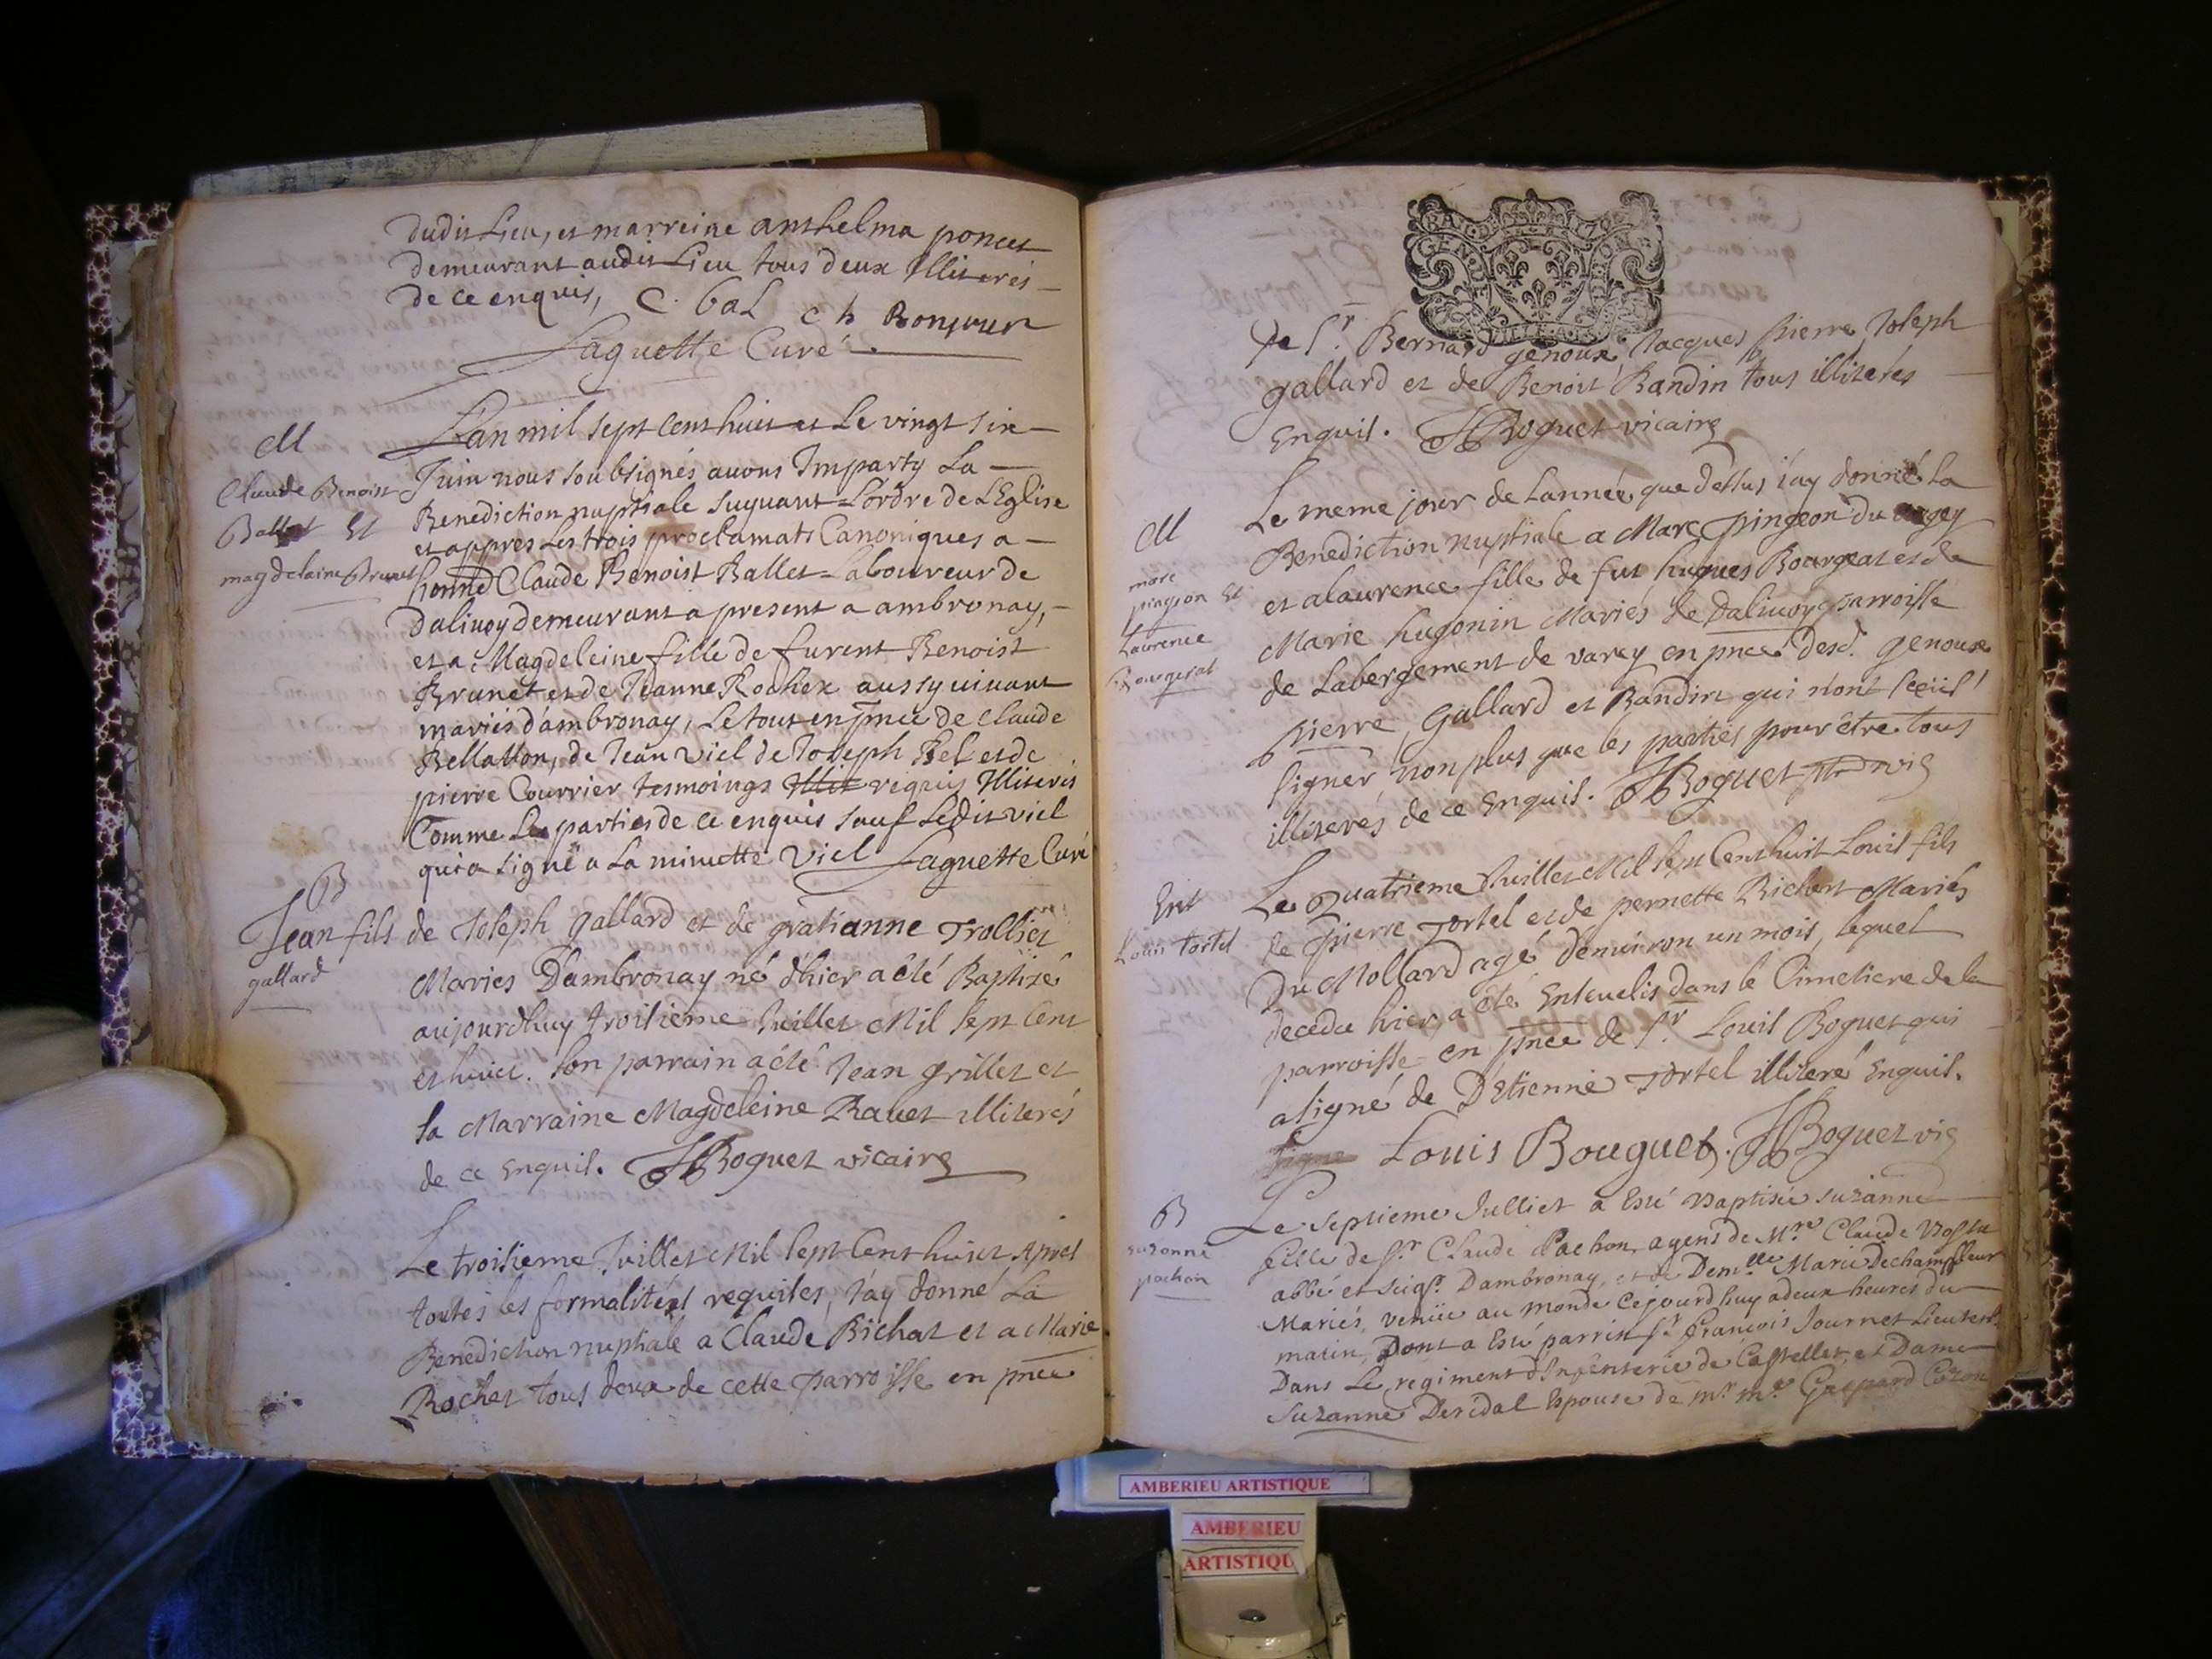 dudit Lieu, et marreine anthelma poncet
demeurant audit Lieu tous deux illiterés
de ce enquis, C. bal ch Bonjour
Laguette Curé
M
Claude Benoist
Ballet Et
magdelaine Brunet
L'an mil sept cent huit et Le vingt six
Juin nous soubsignés avons Imparty La
Benediction nuptiale suyvant L'ordre de L'Eglise
et appres Les trois proclamats Canoniques a
honne Claude Benoist Ballet Laboureur de
dalivoy demeurant a present a ambronay,
et a Magdeleine fille de furent Benoist
Brunet et de Jeanne Rochex aussy vivant
mariés d'ambronay, Le tout en pnce de Claude
Bellatton, de Jean Viel de Joseph Bel et de
pierre Courrier tesmoings Illit requis Illiterés
Comme Les parties de ce enquis sauf Ledit viel
qui a signé a La minutte Viel Laguette Curé
B
Jean fils de Joseph gallard et de gratianne Trollier
gallard
Mariés D'ambronay né d'hier a été Baptizé
aujourdhuy troisieme Juillet Mil sept Cent
et huict. son parrain a été Jean grillet et
sa Marraine Magdeleine Ravet illiterés
de ce Enquis. JBoguet vicaire
Le troisieme Juillet Mil sept Cent huict Apres
toutes les formalités requises, J'ay donné La
Benediction nuptiale a Claude Bichat et a Marie
Rochet tous deux de cette parroisse en pnce
GEN.D
de Sr. Bernard genoux Jacques pierre, Joseph
gallard et de Benoit Bandin tous illiterés
Enquis. JBoguet vicaire
M
marc
pingeon Et
Laurence
Bourgeat
Le meme jour de Lannée que dessus j'ay donné La
Benediction nuptiale a Marc pingeon du
et a laurence fille de fut hugues Bourgeat et de
Marie hugonin Mariés de Dalivoy parroisse
de Labergement de varey en pnce desd. genoux
pierre, Gallard et Bandin qui n'ont sceüs
signer, non plus que les parties pour être tous
illiterés de ce Enquis. JBoguet vic
Ent
Louis tortel
Le Quatrieme Juillet Mil sept Cent huit Louis fils
de pierre Tortel et de pernette Richert Mariés
Du Mollard agé denviron un mois, lequel
decedu hier, a été Enseuelis dans le Cimetiere de la
parroisse en pnce de Sr Louis Boguet qui
a signé de D'Etienne Tortel illiteré Enquis.
signe Louis Bouguet. JBoguet vic
B
suzanne
pachon
Le septieme Julliet a Esté Baptisée suzanne
fille de Sr Claude Pachon, agent de Mre Claude
abbé et seigr. Dambronay, et de Demlle Marie Dechampfleur
Mariés, venüe au monde Cejourd'huy a deux heures du
matin, Dont a Esté parrin Sr François Journet Lieuten.
Dans Le regiment d'Infenterie de Castellet, et Dame
Suzanne Deridal Espouse de mr mre Gaspard Cozon
AMBERIEU ARTISTIQUE
AMBERIEU
ARTISTIQU